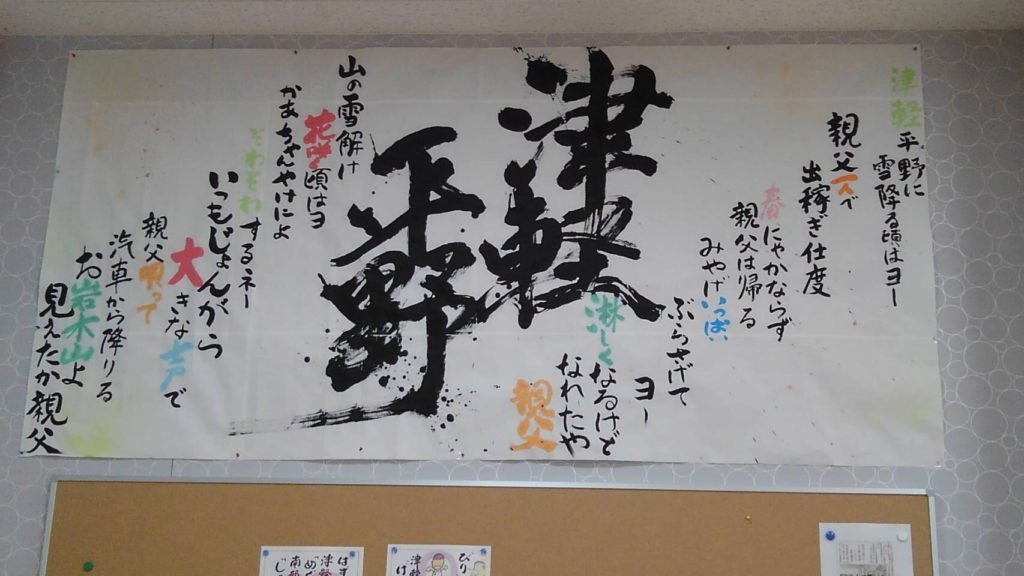 津軽平野に
雪降る頃はヨー
親父一人で
出稼ぎ仕度
春にゃかならず
親父は帰る
みやげいっぱい
ぶらさげて
ヨー
淋しくなるけど
なれたや
親父
津軽
平野
山の雪解け
花咲く頃はヨ
かあちゃんやけによ
そわそわするネー
いつもじょんがら
大きな声で
親父唄って
汽車から降りる
お岩木山よ
見えたか親父